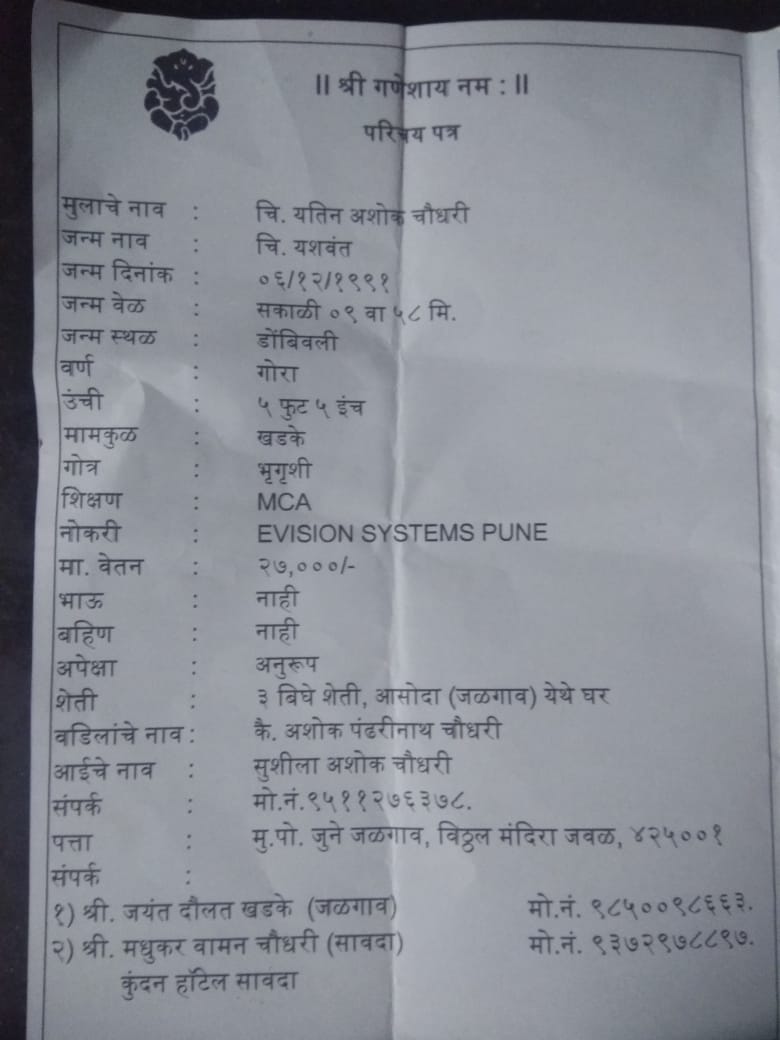 ॥ श्री गणेशाय नम : ॥
परिचय पत्र
मुलाचे नाव : चि. यतिन अशोक चौधरी
जन्म नाव : चि. यशवंत
जन्म दिनांक : ०६/१२/१९९१
जन्म वेळ : सकाळी ०९ वा ५८ मि.
जन्म स्थळ : डोंबिवली
वर्ण : गोरा
उंची : ५ फुट ५ इंच
मामकुळ : खडके
गोत्र : भृगृशी
शिक्षण : MCA
नोकरी : EVISION SYSTEMS PUNE
मा. वेतन : २७,०००/-
भाऊ : नाही
बहिण : नाही
अपेक्षा : अनुरूप
शेती : ३ बिघे शेती, आसोदा (जळगाव) येथे घर
वडिलांचे नाव : कै. अशोक पंढरीनाथ चौधरी
आईचे नाव : सुशीला अशोक चौधरी
संपर्क : मो.नं.९५११२७६३७८.
पत्ता : मु.पो. जुने जळगाव, विठ्ठल मंदिरा जवळ, ४२५००१
संपर्क :
१) श्री. जयंत दौलत खडके (जळगाव) मो.नं. ९८५००९८६६३.
२) श्री. मधुकर वामन चौधरी (सावदा) मो.नं. ९३७२९७८८९७.
कुंदन हॉटेल सावदा